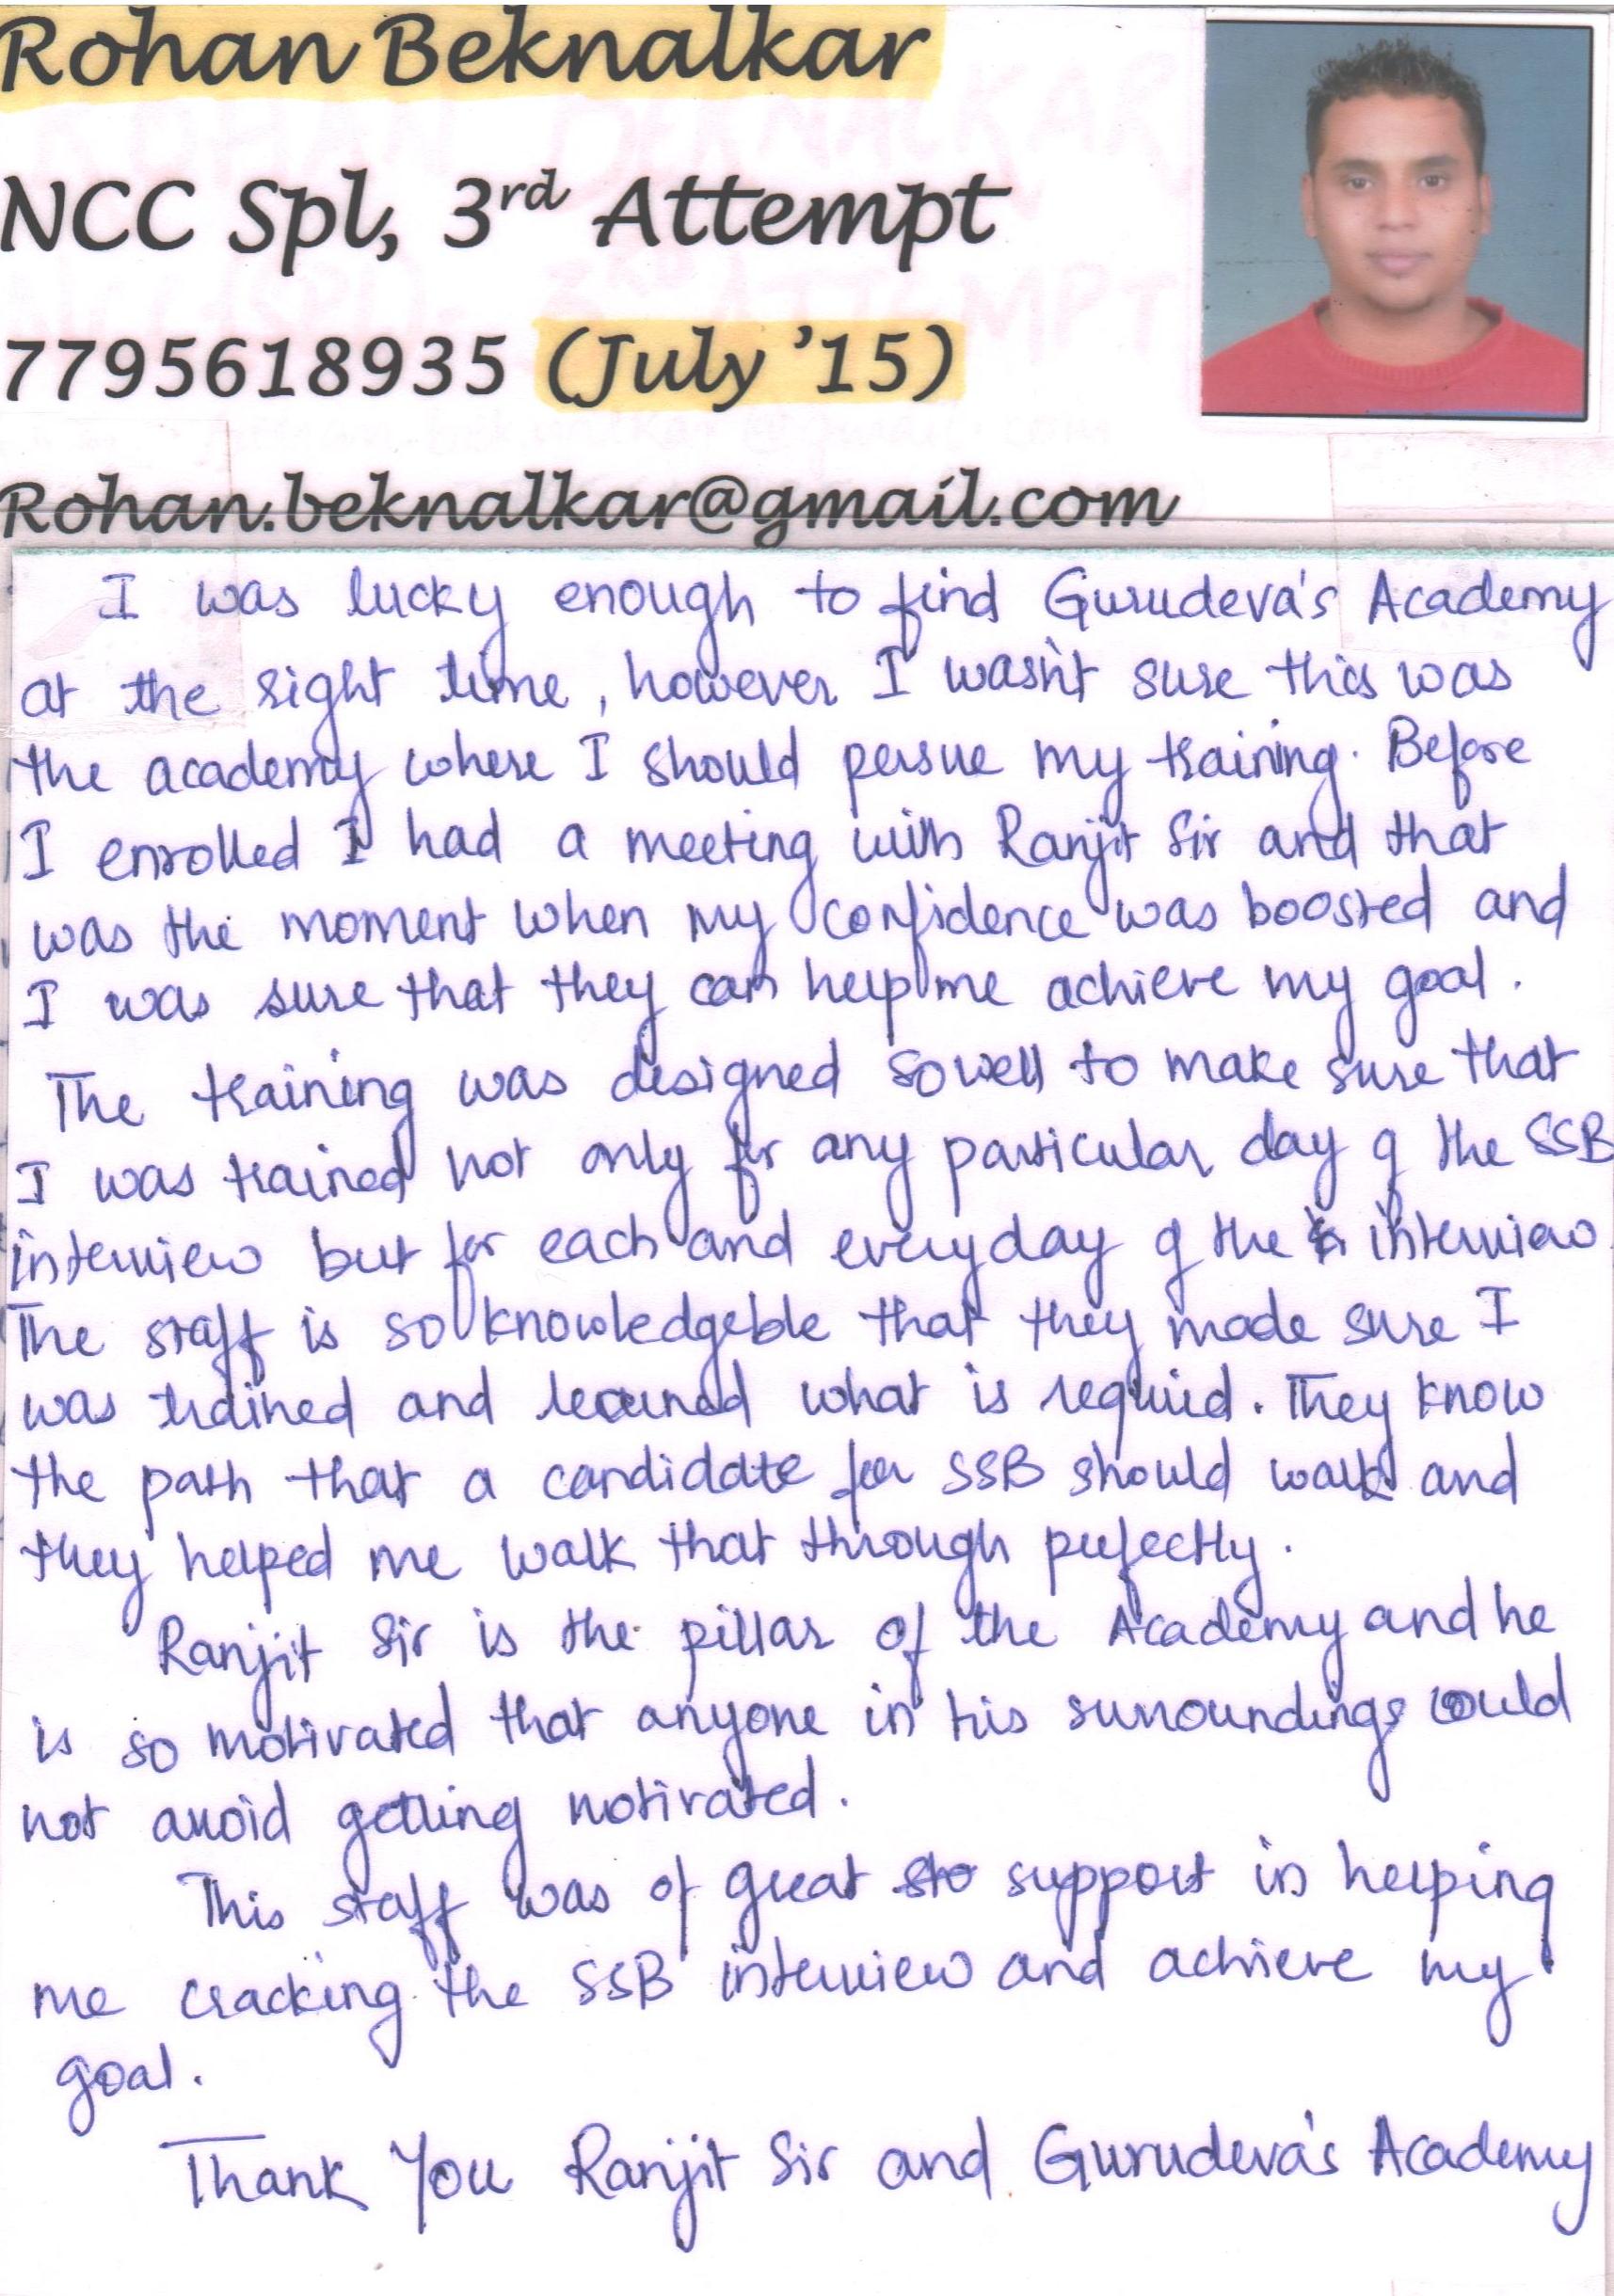 Rohan Beknalkar
NCC Spl, 3rd Attempt
7795618935 (July '15)
Rohan.beknalkar@gmail.com
I was lucky enough to find Gurudeva's Academy
at the right time, however I wasn't sure this was
the academy where I should persue my training. Before
I enrolled I had a meeting with Ranjit Sir and that
was the moment when my confidence was boosted and
I was sure that they can help me achieve my goal.
The training was designed so well to make sure that
I was trained not only for any particular day of the SSB
interview but for each and everyday of the interview.
The staff is so knowledgeble that they made sure I
was trained and learned what is requied. They know
the path that a candidate for SSB should walk and
they helped me walk that through perfectly.
Ranjit Sir is the pillar of the Academy and he
is so motivated that anyone in his surroundings could
not avoid getting motivated.
This staff was of great sto support in helping
me cracking the SSB interview and achieve my
goal.
Thank You Ranjit Sir and Gurudeva's Academy